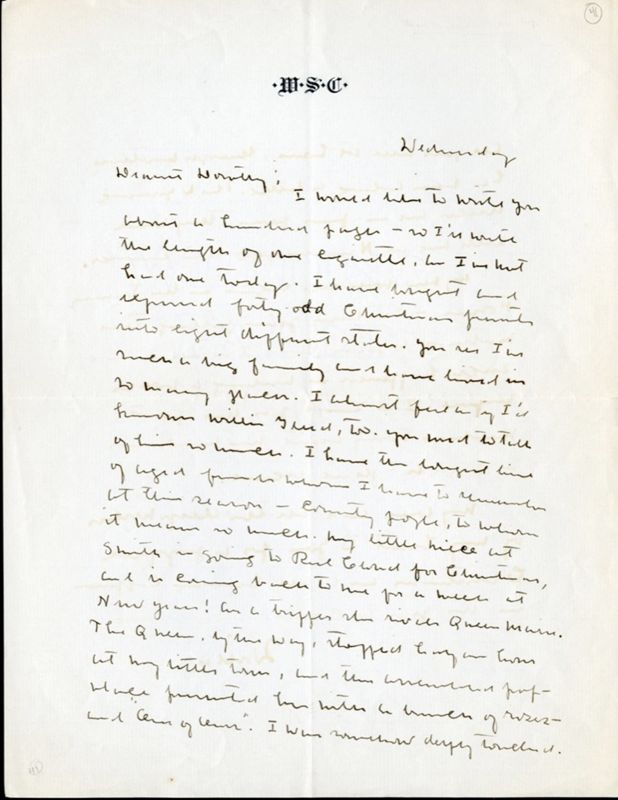 ·W·S·C·
Wednesday
Dearest Dorothy;
I would like to write you
about a hundred pages – so I'll write
the length of one cigarette, as I've not
had one today. I have bought and
odd Christmas presents
into eight different states. You see I've
such a big family and have lived in
so many places. I almost feel as if I'd
known Willie, too. You used to talk
of him so much. I have the longest line
of aged friends whom I have to remember
at this season – country people, to whom
it means so much. My little niece at
Smith is going to Red Cloud for Christmas,
and is coming back to me for a week at
New Years! As a tripper she rivals Queen Marie.
The Queen, by the way, stopped half an hour
at my little town, and the assembled pop-
ulace presented her with a bunch of roses
and I was somehow deeply touched.